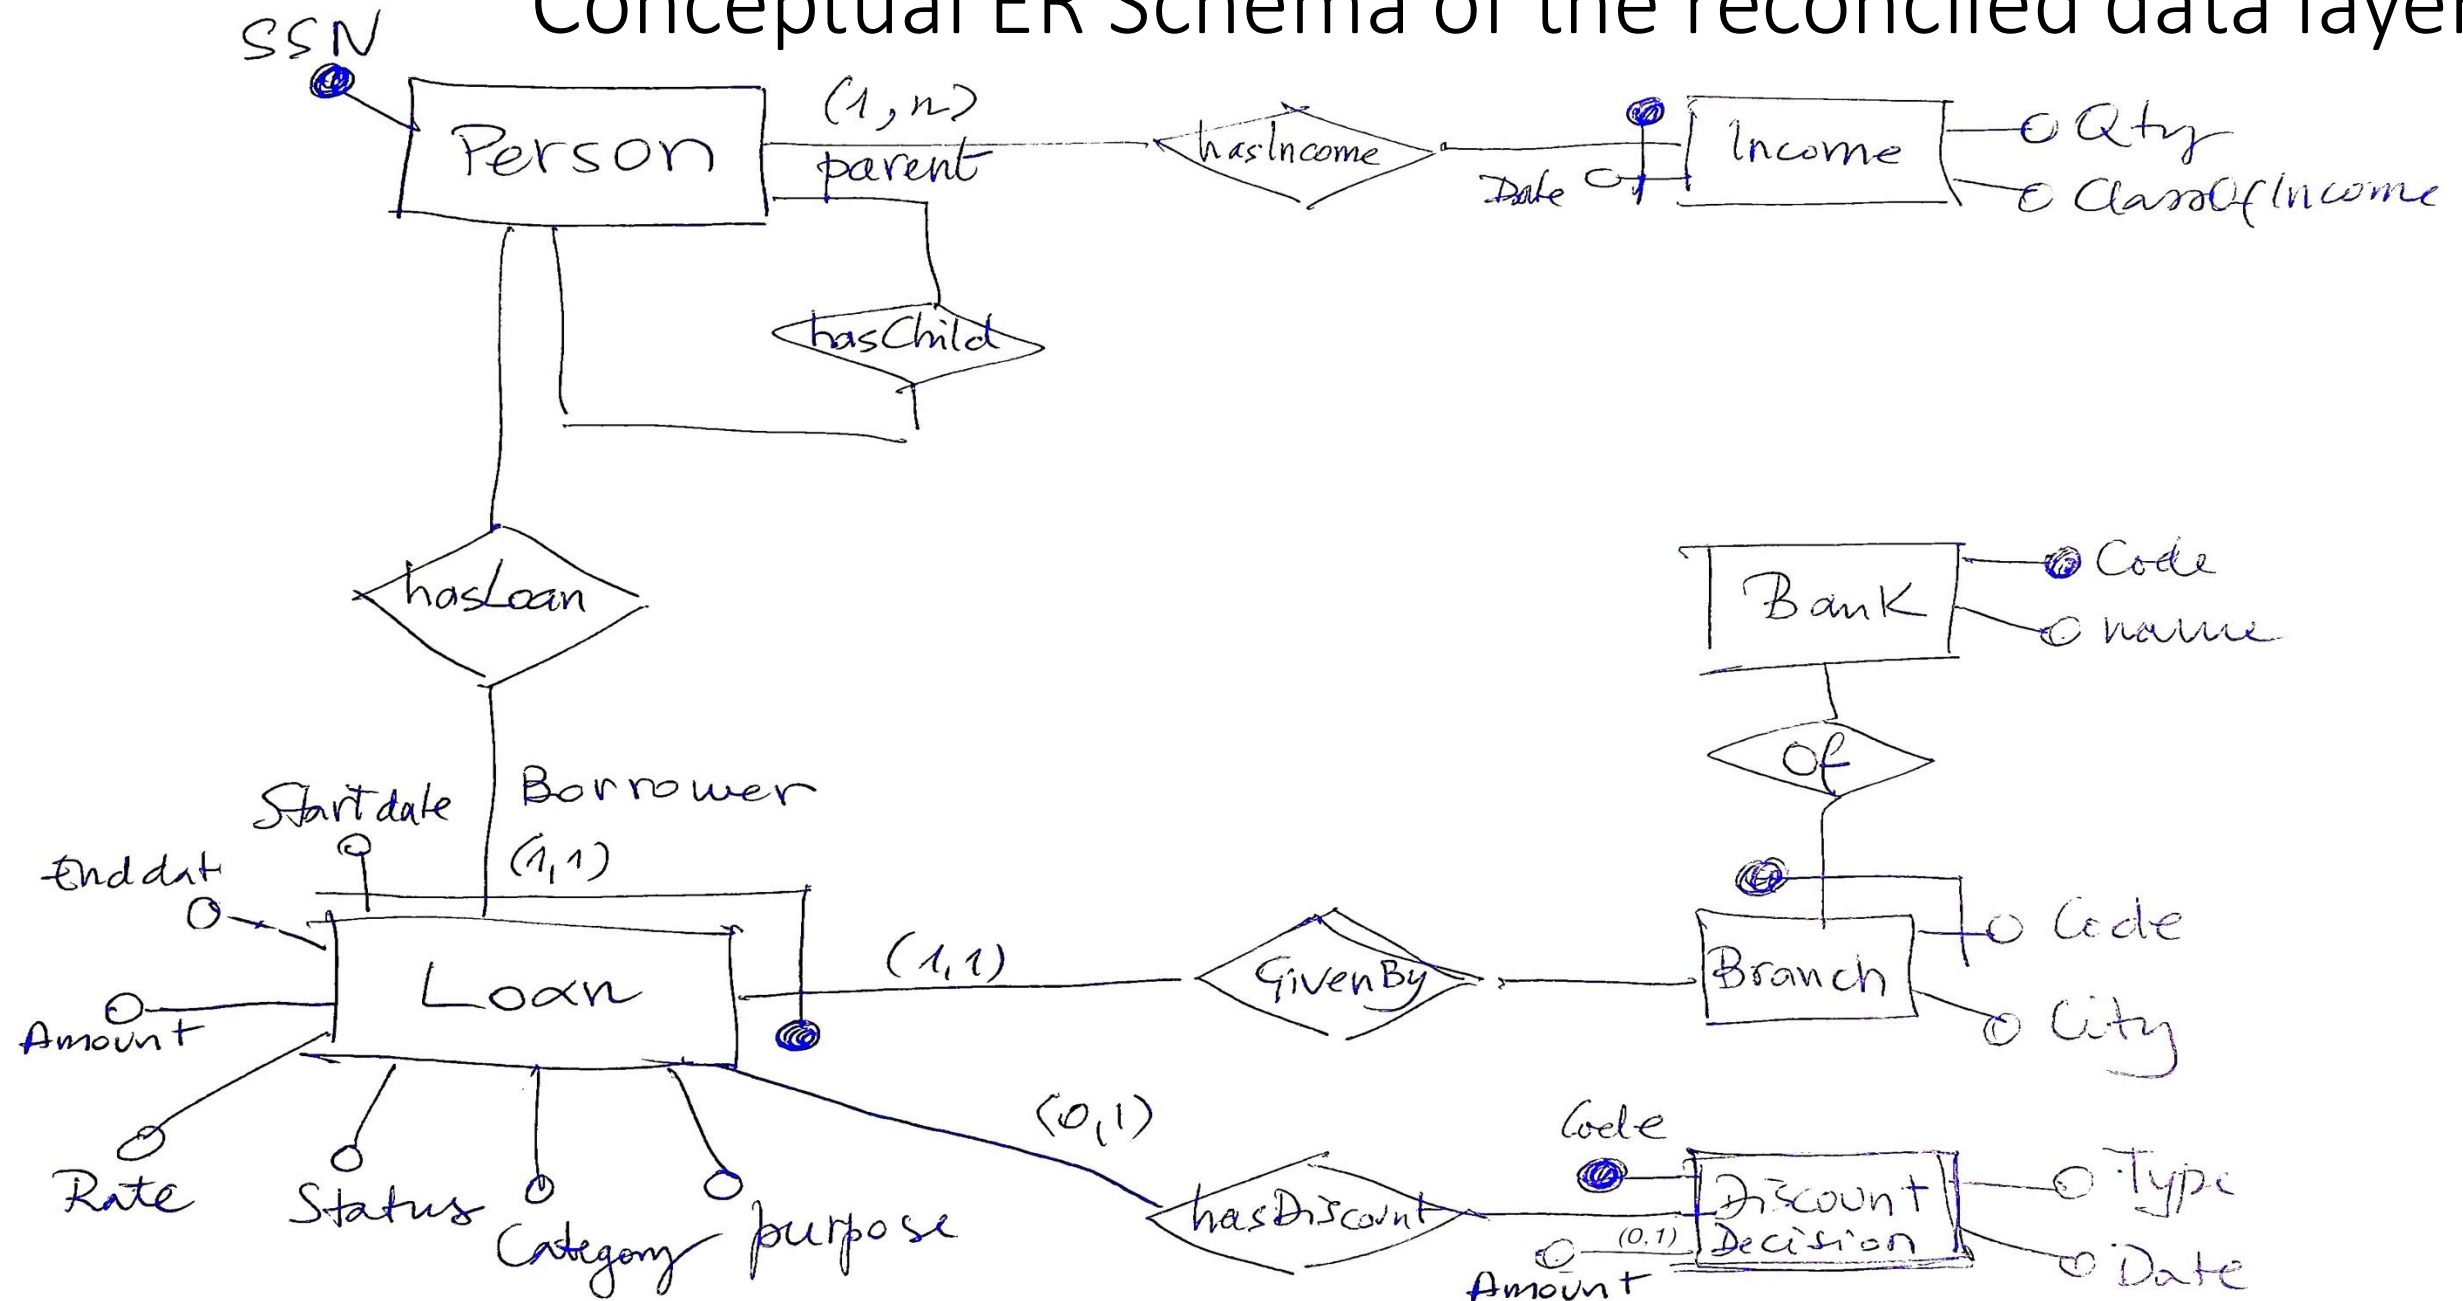 Conceptual ER Schema of the reconciled data layer
SSN
Person
(1,n)
parent
hasIncome
Date
Income
Qty
ClassOfIncome
hasChild
hasLoan
Borrower
(1,1)
Bank
Code
name
Of
Startdate
Enddat
Amount
Loan
(1,1)
GivenBy
Branch
Code
City
Rate
Status
Category
purpose
(0,1)
hasDiscount
Code
Discount
Decision
(0,1)
Amount
Type
Date